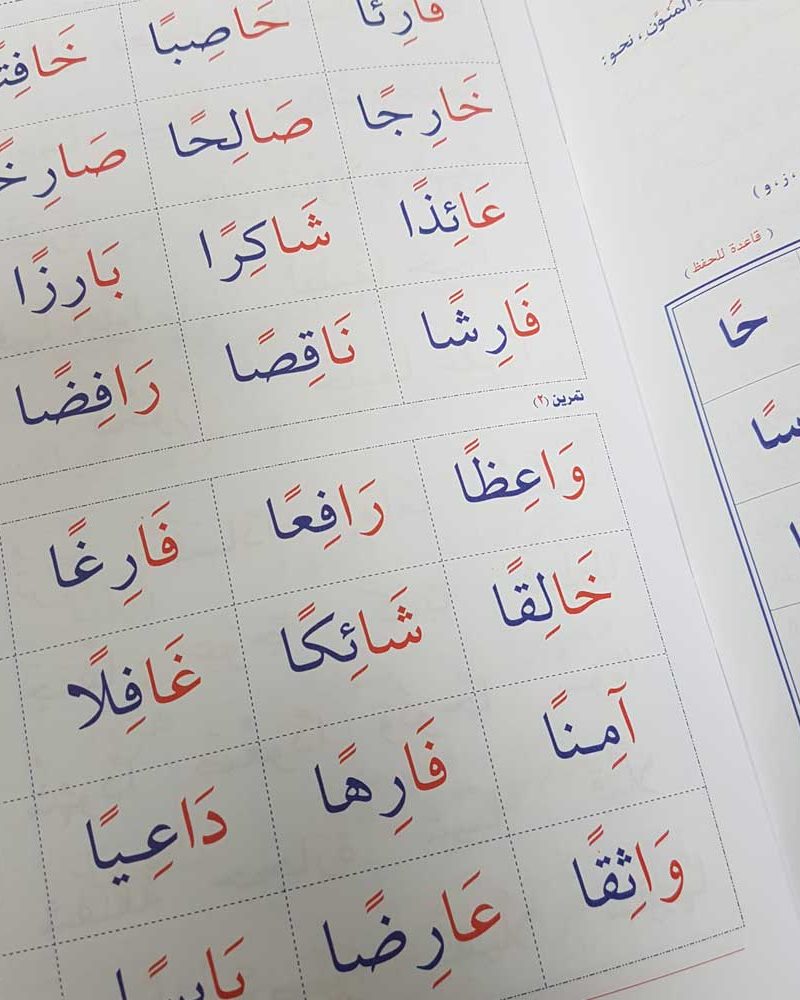 حَاصِبًا
خَارِجًا صَالِحًا
عَائِذًا شَاكِرًا بَارِزًا
فَارِشًا نَاقِصًا رَافِضًا
تمرين (٢)
وَاعِظًا رَافِعًا فَارِغًا
خَالِقًا شَائِكًا غَافِلًا
آمِنًا فَارِهًا دَاعِيًا
وَاثِقًا عَارِضًا
المنوّن، نحو:
، ز، و)
(قاعدة للحفظ)
حًا
سًا